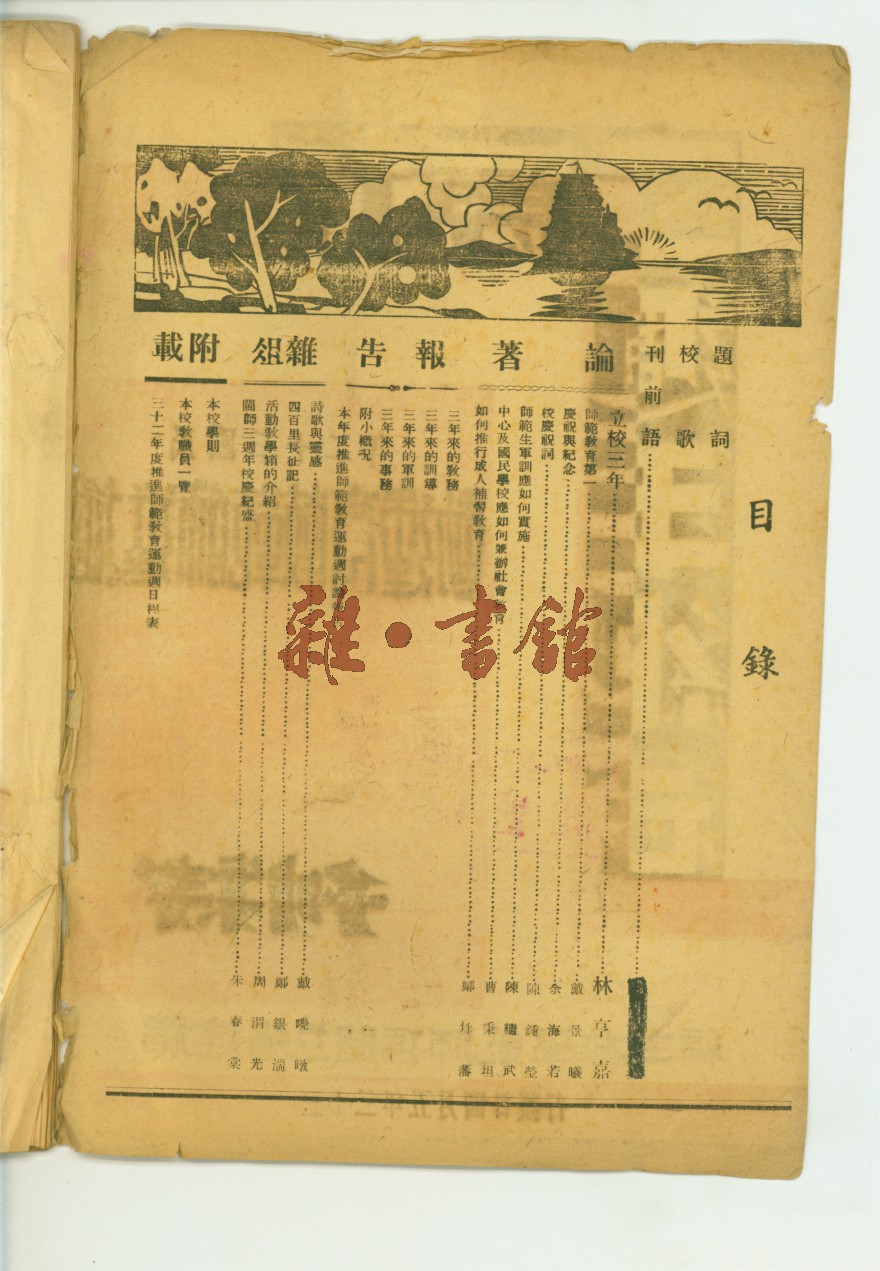 目錄
題詞
校歌
刊前語
論著
立校三年 林亨嘉
師範教育第一 戴景曦
慶祝與紀念 余海若
校慶祝詞 陳鍾瑩
師範生軍訓應如何實施 陳武
中心及國民學校應如何兼辦社會教育 曹秉垣
如何推行成人補習教育 鄭藩
報告
三年來的教務
三年來的訓導
三年來的軍訓
三年來的事務
附小概況
本年度推進師範教育運動週討
雜俎
詩歌與靈感 戴曉暾
四百里長征記 鄭銀濤
活動教學箱的介紹 周渭光
三週年校慶紀盛 朱春棠
附載
本校學則
本校教職員一覽
三十二年度推進師範教育運動週日程表
雜·書館